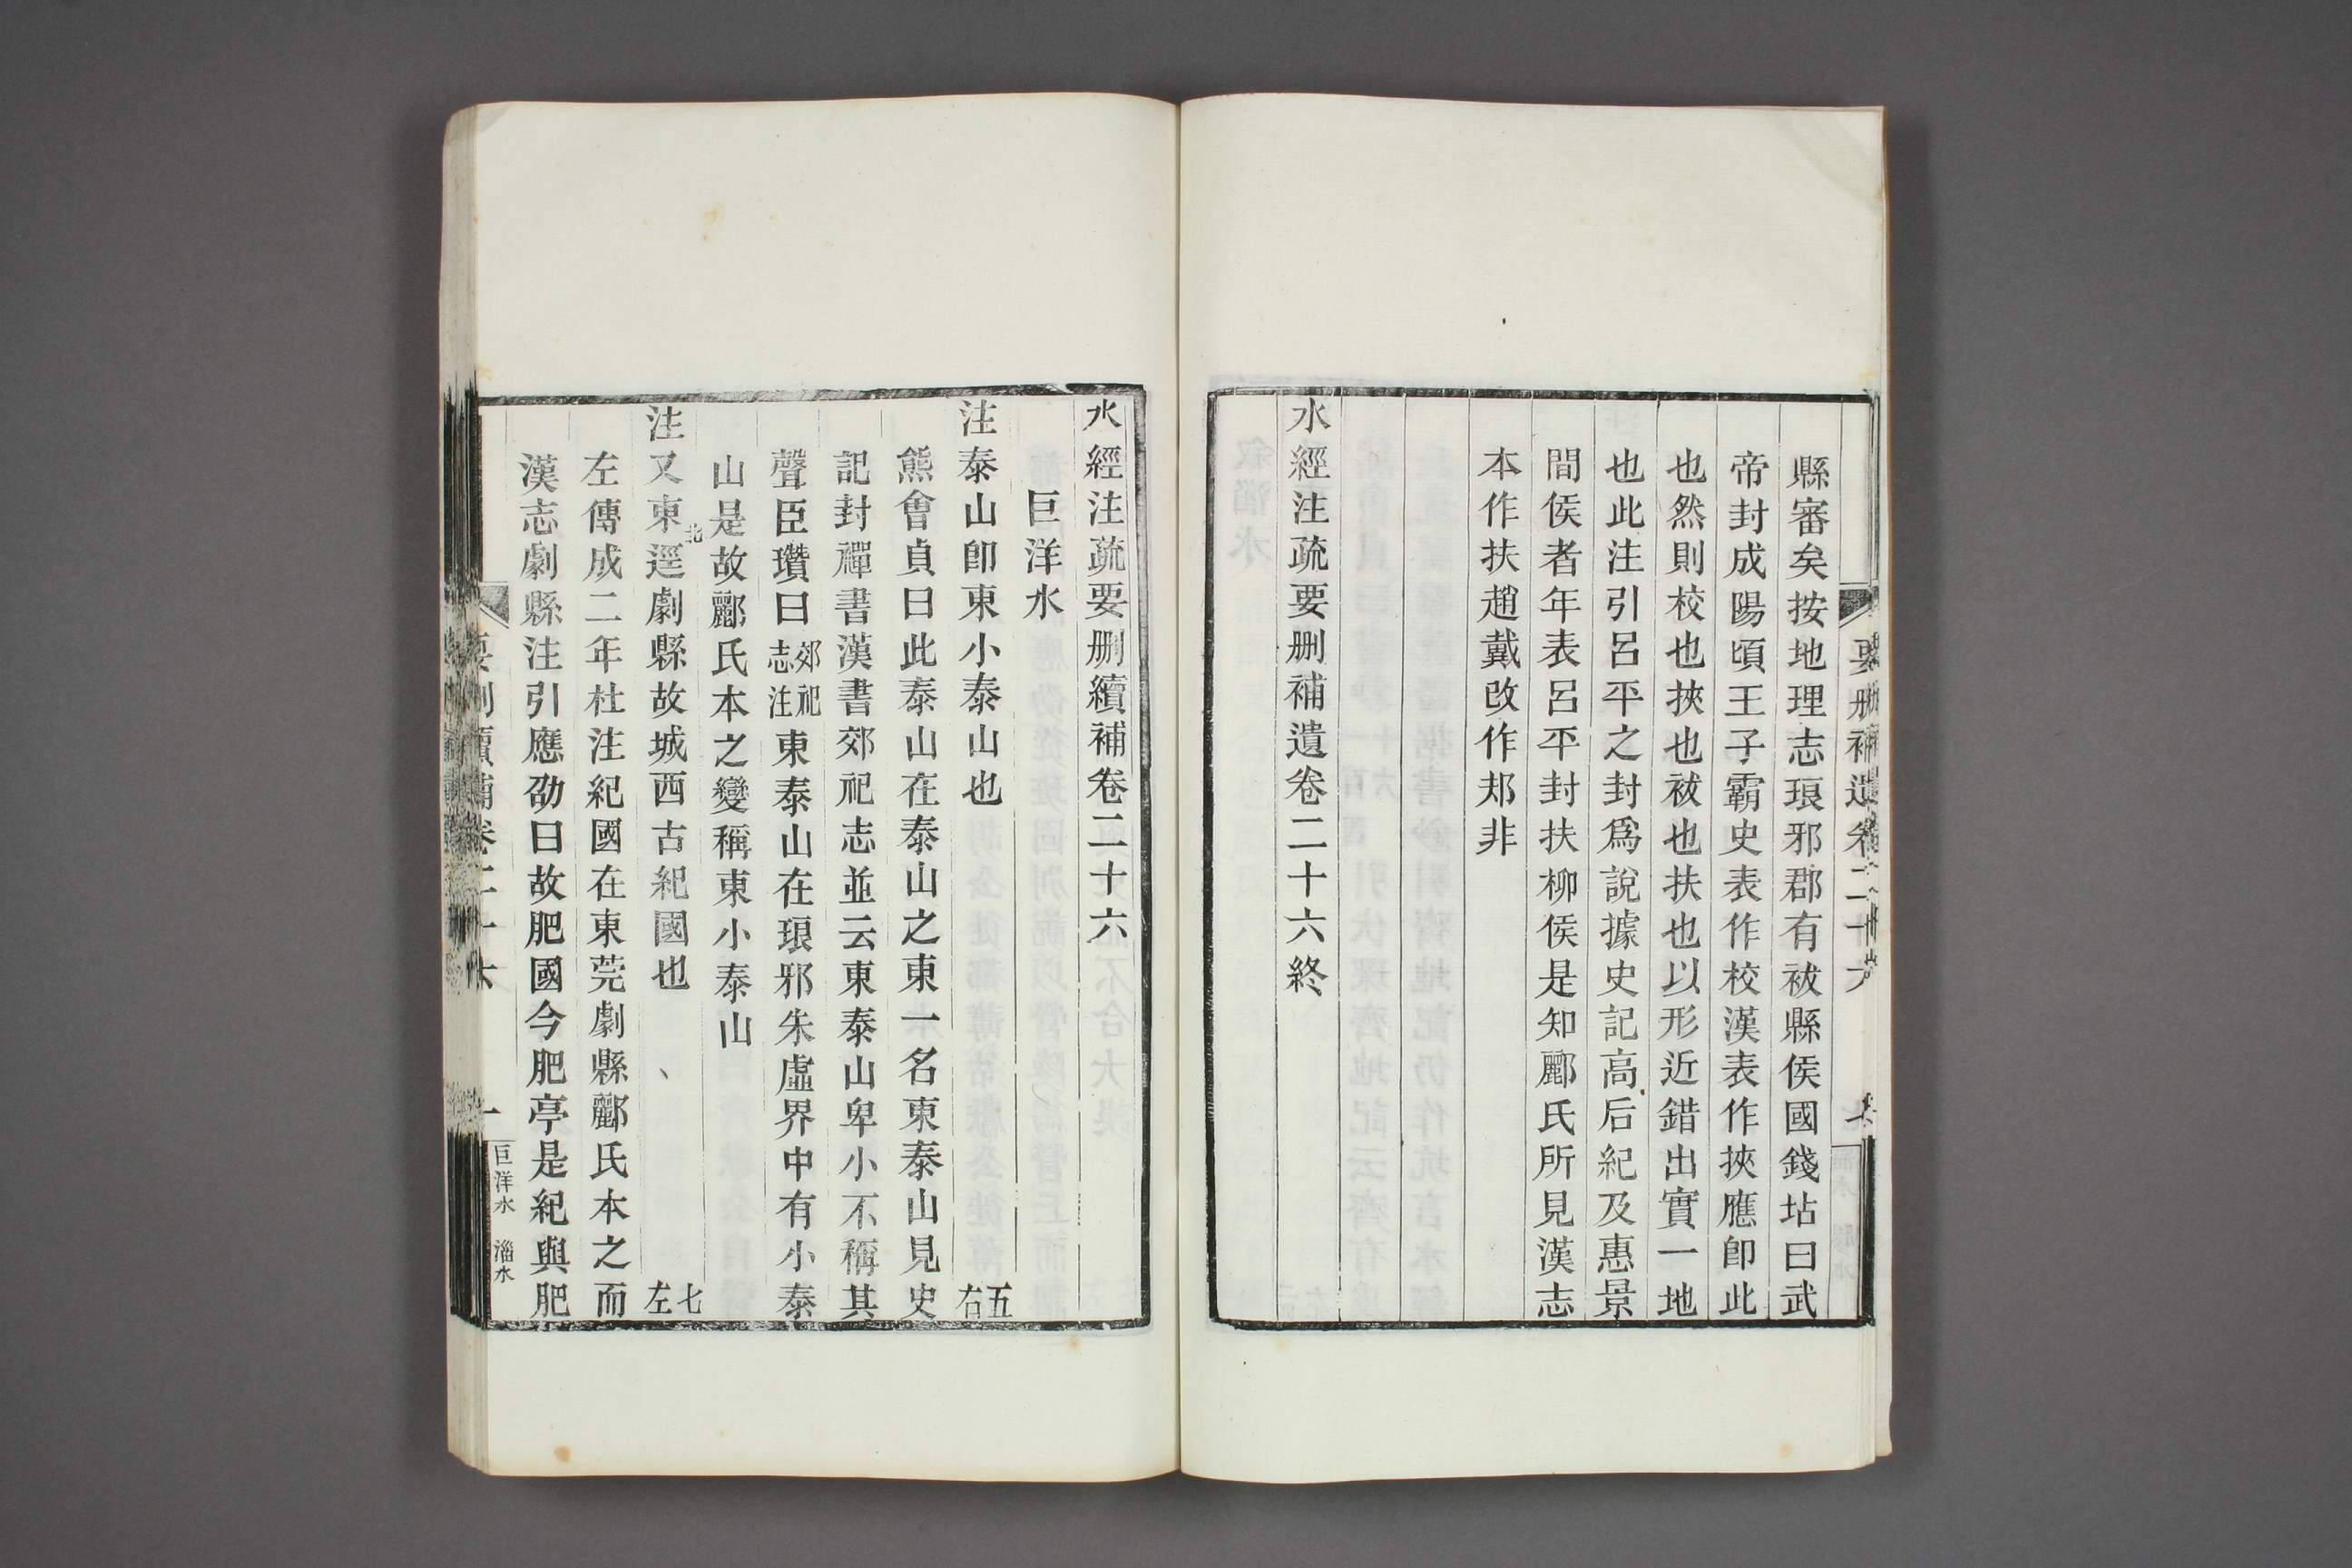 縣審矣按地理志琅邪郡有祓縣侯國錢坫曰武
帝封成陽頃王子霸史表作校漢表作挾應卽此
也然則校也挾也祓也扶也以形近錯出實一地
也此注引呂平之封爲說據史記高后紀及惠景
間侯者年表呂平封扶柳侯是知酈氏所見漢志
本作扶趙戴改作邞非
水經注疏要删補遺卷二十六終
水經注疏要删續補卷二十六
巨洋水
注泰山卽東小泰山也 五右
熊會貞曰此泰山在泰山之東一名東泰山見史
記封禪書漢書郊祀志並云東泰山卑小不稱其
聲臣瓚曰郊祀志注東泰山在琅邪朱虛界中有小泰
山是故酈氏本之變稱東小泰山
注又東北逕劇縣故城西古紀國也 七左
左傳成二年杜注紀國在東莞劇縣酈氏本之而
漢志劇縣注引應劭曰故肥國今肥亭是紀與肥
要删續補卷二十六 一 巨洋水 淄水